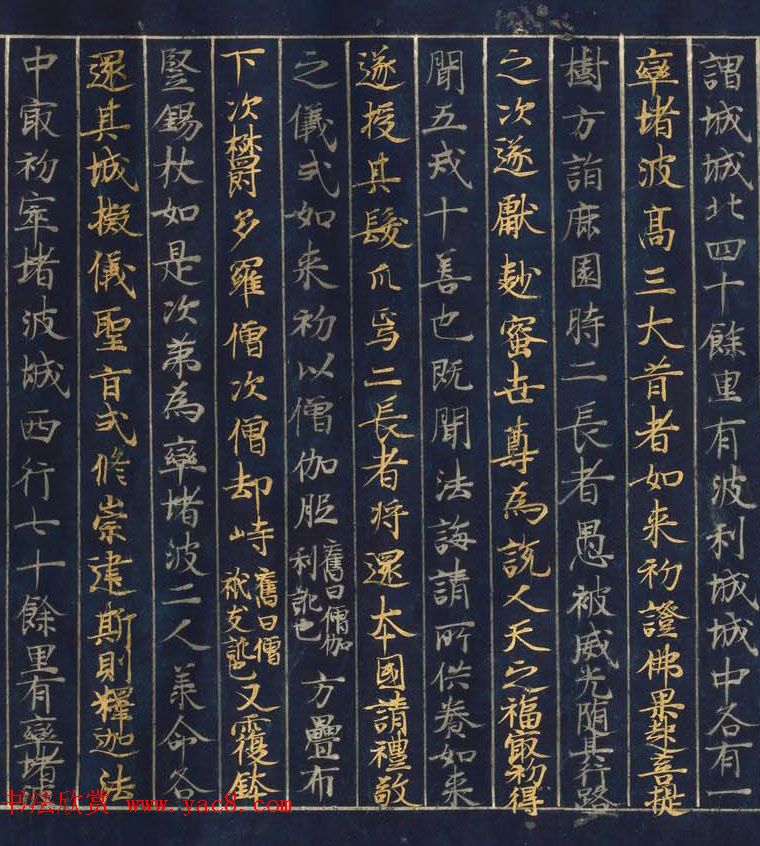 謂城城北四十餘里有波利城城中各有一
窣堵波高三大昔者如来初證佛果起菩提
樹方詣鹿園時二長者愚被威光随其行路
之次遂獻麨蜜世尊為説人天之福冣初得
聞五戒十善也既聞法誨請所供養如来
遂授其髮爪焉二長者将還本國請禮敬
之儀式如来初以僧伽胝舊曰僧伽利訛也方疊布
下次欝多羅僧次僧却崎舊曰僧祇支訛也又覆鉢
竪錫杖如是次第為窣堵波二人承命各
還其城擬儀聖旨式修崇建斯則釋迦法
中冣初窣堵波城西行七十餘里有窣堵
书法欣赏 www.yac8.com